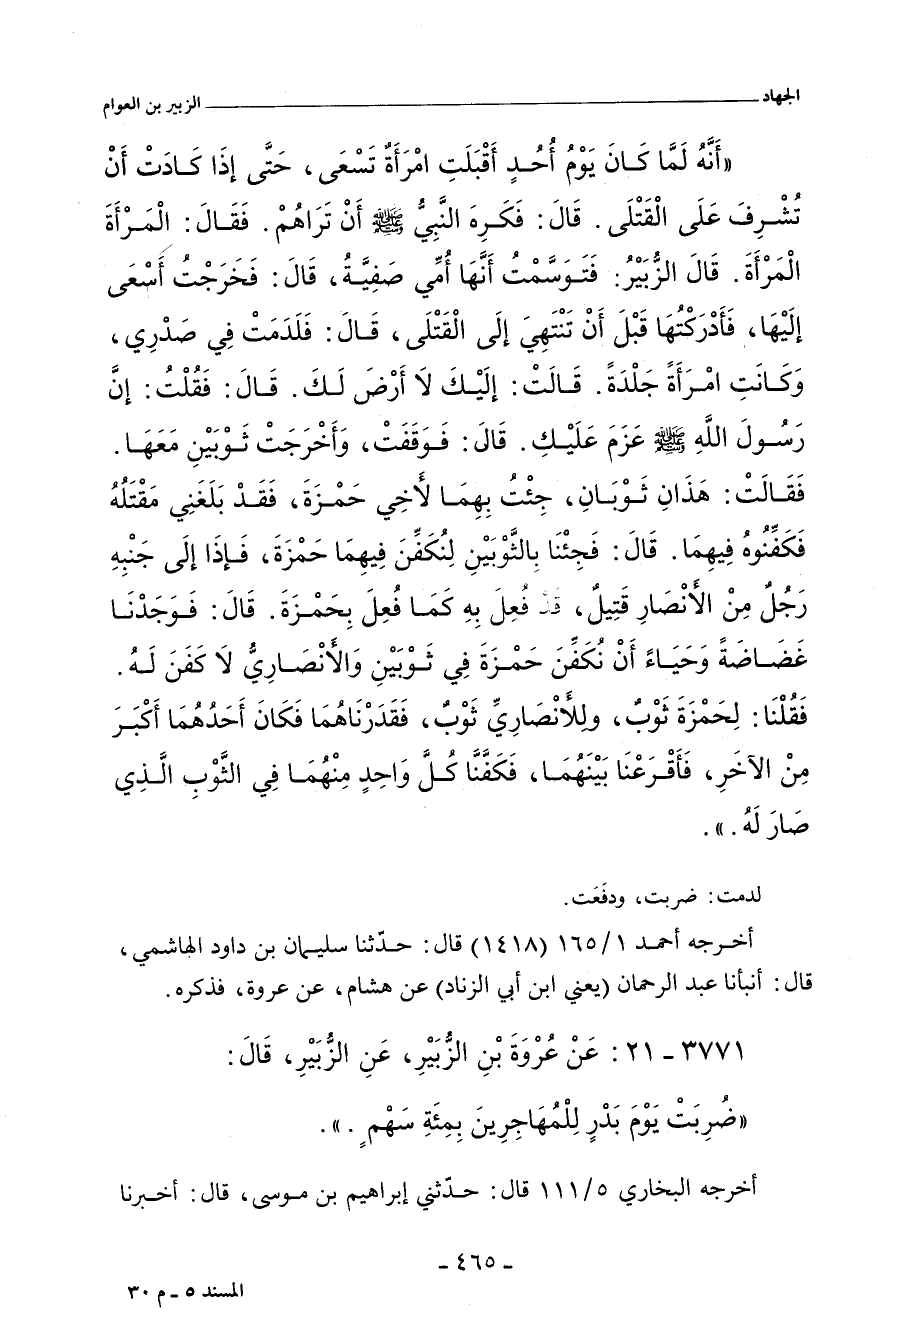 الجهاد ــــــــــ الزبير بن العوام
«أَنَّهُ لَمَّا كَـانَ يَوْمُ أُحُـدٍ أَقْبَلَتِ امْرَأَةٌ تَسْعَى، حَتَّى إِذَا كَـادَتْ أَنْ
تُشْـرِفَ عَلَى الْقَتْلَى. قَالَ: فَكَرِهَ النَّبِيُّ ﷺ أَنْ تَرَاهُمْ. فَقَـالَ: الْمَـرْأَةَ
الْمَرْأَةَ. قَالَ الزُّبَيْرُ: فَتَـوَسَّمْتُ أَنَّهَا أُمِّي صَفِيَّةُ، قَالَ: فَخَرَجْتُ أَسْعَى
إِلَيْهَا، فَأَدْرَكْتُهَا قَبْلَ أَنْ تَنْتَهِيَ إِلَى الْقَتْلَى، قَـالَ: فَلَدَمَتْ فِي صَدْرِي،
وَكَـانَتِ امْـرَأَةً جَلْدَةً. قَـالَتْ: إِلَيْـكَ لَا أَرْضَ لَـكَ. قَـالَ: فَقُلْتُ: إِنَّ
رَسُـولَ اللَّهِ ﷺ عَزَمَ عَلَيْـكِ. قَالَ: فَـوَقَفَتْ، وَأَخْرَجَتْ ثَـوْبَيْنِ مَعَهَـا.
فَقَـالَتْ: هَذَانِ ثَـوْبَـانِ، جِئْتُ بِهِمَـا لِأَخِي حَمْـزَةَ، فَقَـدْ بَلَغَنِي مَقْتَلُهُ
فَكَفِّنُوهُ فِيهِمَا. قَالَ: فَجِئْنَا بِالثَّوْبَيْنِ لِنُكَفِّنَ فِيهِمَا حَمْزَةَ، فَـإِذَا إِلَى جَنْبِهِ
رَجُلٌ مِنْ الْأَنْصَارِ قَتِيلٌ، قَدْ فُعِلَ بِهِ كَمَـا فُعِلَ بِحَمْـزَةَ. قَالَ: فَـوَجَدْنَـا
غَضَـاضَةً وَحَيَـاءً أَنْ نُكَفِّنَ حَمْـزَةَ فِي ثَـوْبَيْنِ وَالْأَنْصَـارِيُّ لَا كَفَنَ لَـهُ.
فَقُلْنَا: لِحَمْزَةَ ثَوْبٌ، وَلِلْأَنْصَارِيِّ ثَوْبٌ، فَقَدَرْنَاهُمَا فَكَانَ أَحَدُهُمَا أَكْبَرَ
مِنْ الْآخَرِ، فَأَقْـرَعْنَا بَيْنَهُمَـا، فَكَفَّنَّا كُـلَّ وَاحِدٍ مِنْهُمَـا فِي الثَّوْبِ الَّـذِي
صَارَ لَهُ.».
لدمت: ضربت، ودفَعَت.
أخـرجه أحمـد ١/١٦٥ (١٤١٨) قال: حـدّثنا سليـمان بن داود الهاشمي،
قال: أنبأنا عبد الرحمان (يعني ابن أبي الزناد) عن هشام، عن عروة، فذكره.
٣٧٧١ ـ ٢١: عَنْ عُرْوَةَ بْنِ الزُّبَيْرِ، عَنِ الزُّبَيْرِ، قَالَ:
«ضُرِبَتْ يَوْمَ بَدْرٍ لِلْمُهَاجِرِينَ بِمِئَةِ سَهْمٍ.».
أخرجه البخاري ٥/١١١ قال: حـدّثني إبراهيم بن مـوسى، قال: أخـبرنا
ـ ٤٦٥ ـ
المسند ٥ ـ م ٣٠